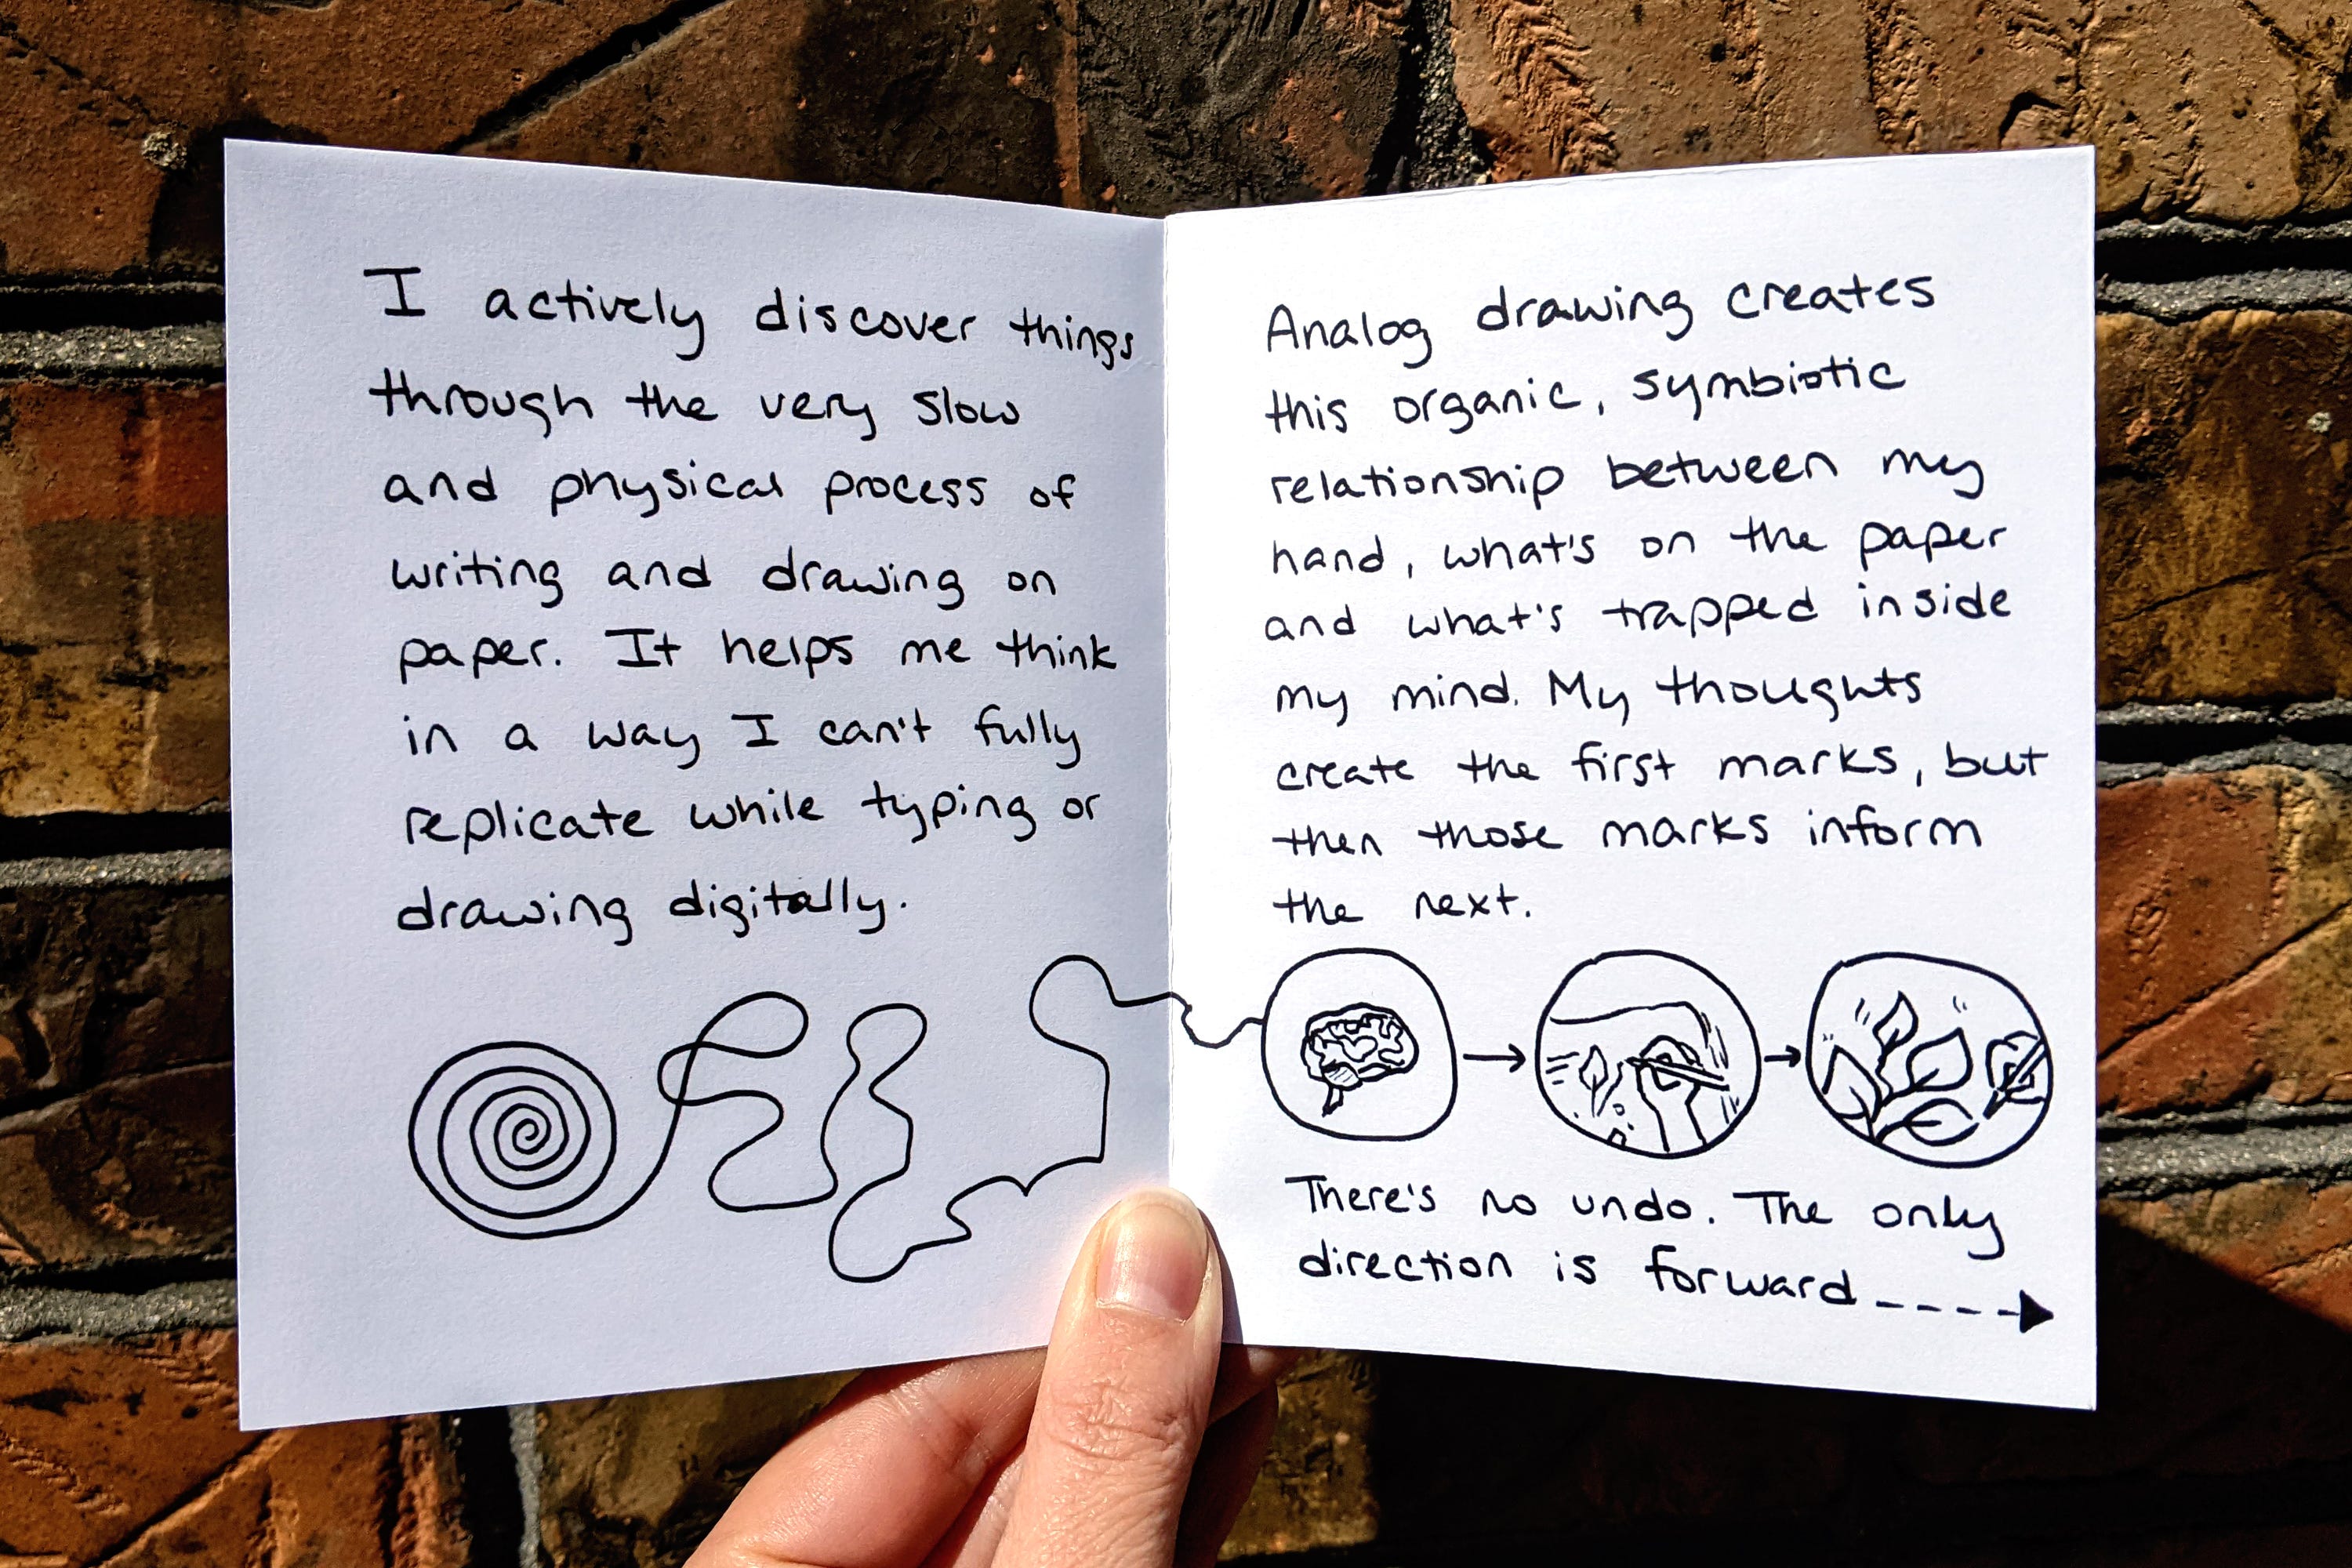 I actively discover things
through the very slow
and physical process of
writing and drawing on
paper. It helps me think
in a way I can't fully
replicate while typing or
drawing digitally.
Analog drawing creates
this organic, symbiotic
relationship between my
hand, what's on the paper
and what's trapped inside
my mind. My thoughts
create the first marks, but
then those marks inform
the next.
There's no undo. The only
direction is forward